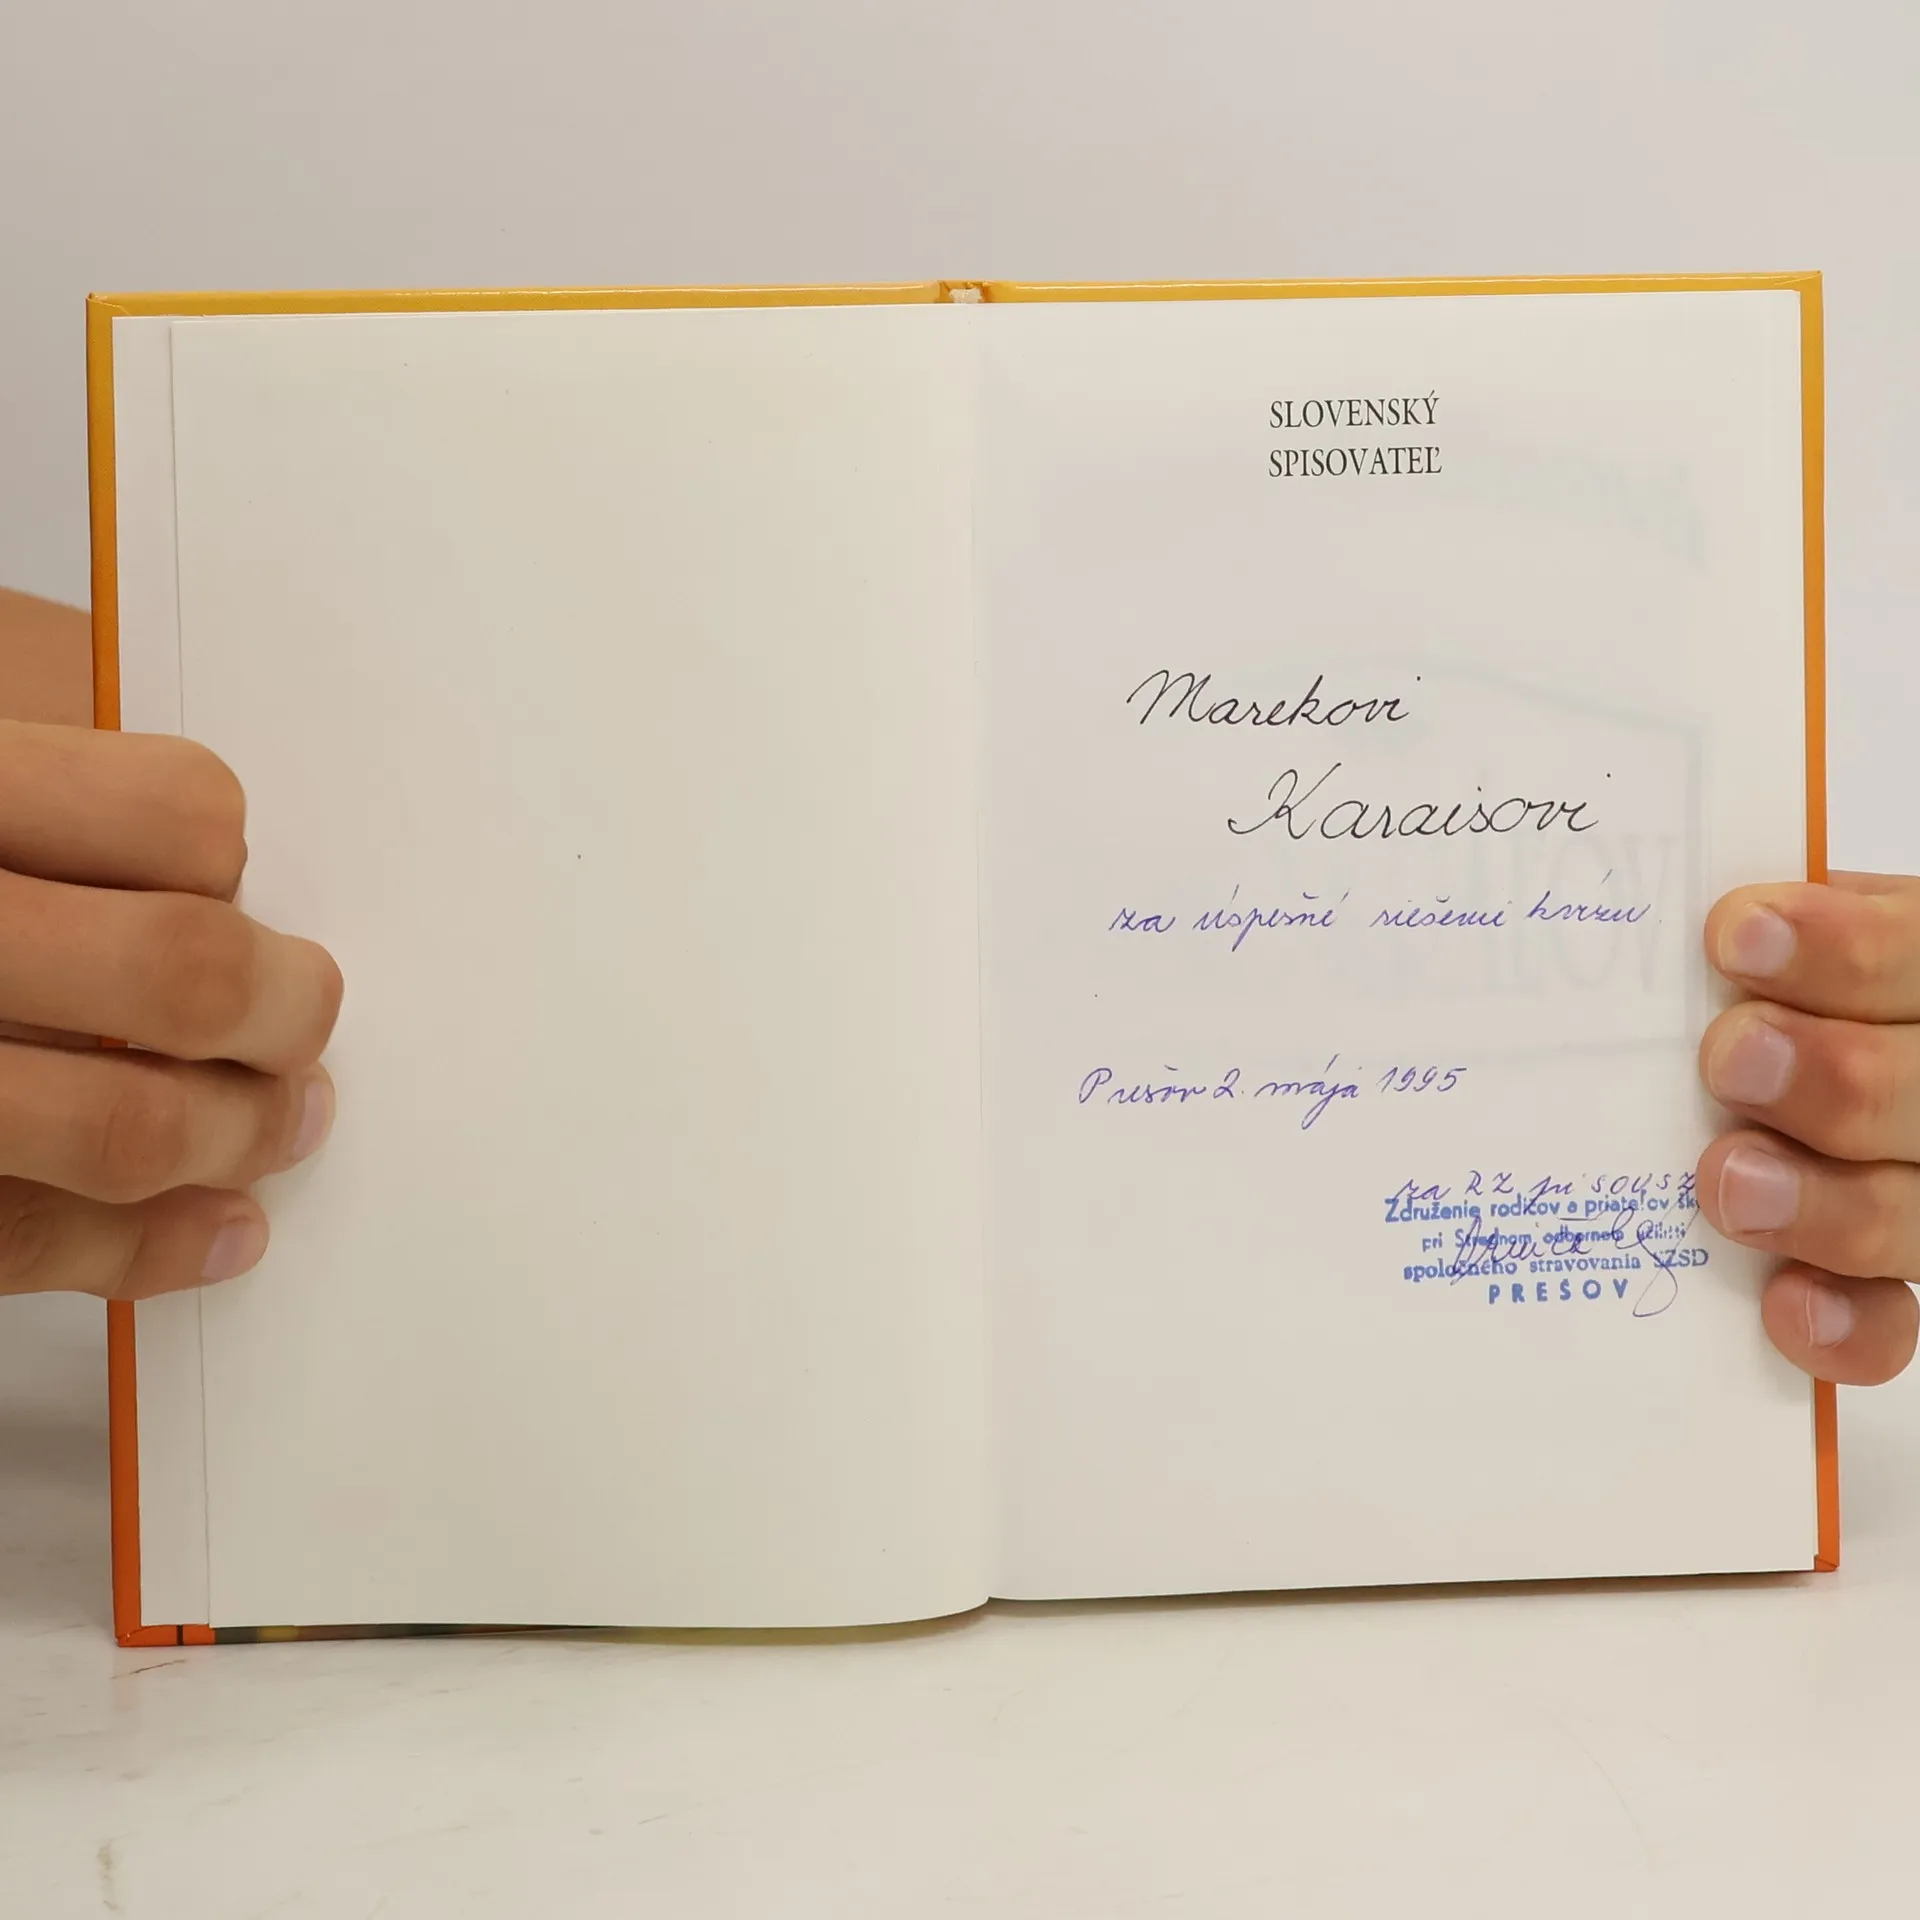 SLOVENSKÝ
SPISOVATEĽ
Marekovi
Karaisovi
za úspešné riešenie kvízu
Prešov 2. mája 1995
za RZ pri SOUSZ
Združenie rodičov a priateľov šk
pri Strednom odbornom učilišti
spoločného stravovania SZSD
PREŠOV